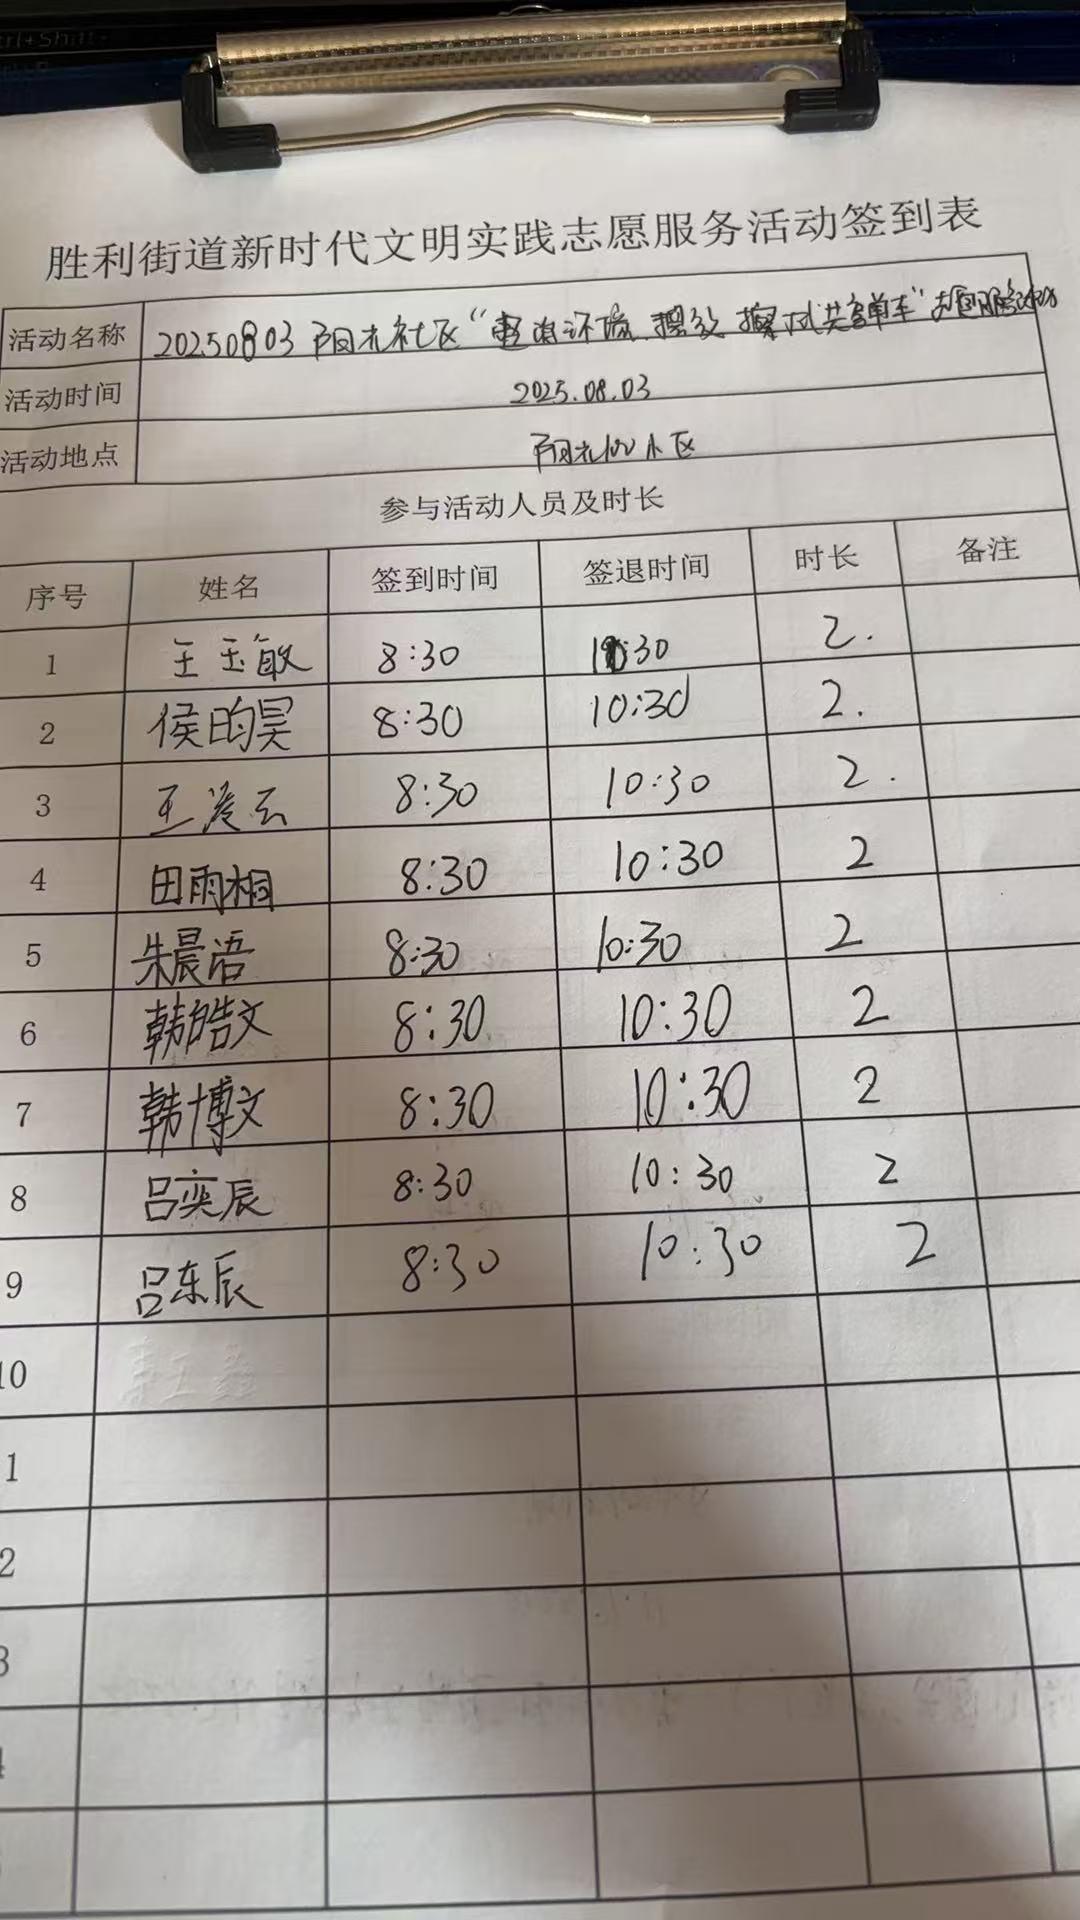 胜利街道新时代文明实践志愿服务活动签到表
活动名称 20250803 阳光社区“ 环境、摆放 擦拭共享单车”志愿服务活动
活动时间 2025.08.03
活动地点 阳光100小区
参与活动人员及时长
序号 姓名 签到时间 签退时间 时长 备注
1 王玉敏 8:30 10:30 2.
2 侯昀昊 8:30 10:30 2.
3 王凌云 8:30 10:30 2.
4 田雨桐 8:30 10:30 2
5 朱晨语 8:30 10:30 2
6 韩皓文 8:30 10:30 2
7 韩博文 8:30 10:30 2
8 吕奕辰 8:30 10:30 2
9 吕东辰 8:30 10:30 2
10
1
2
3
4